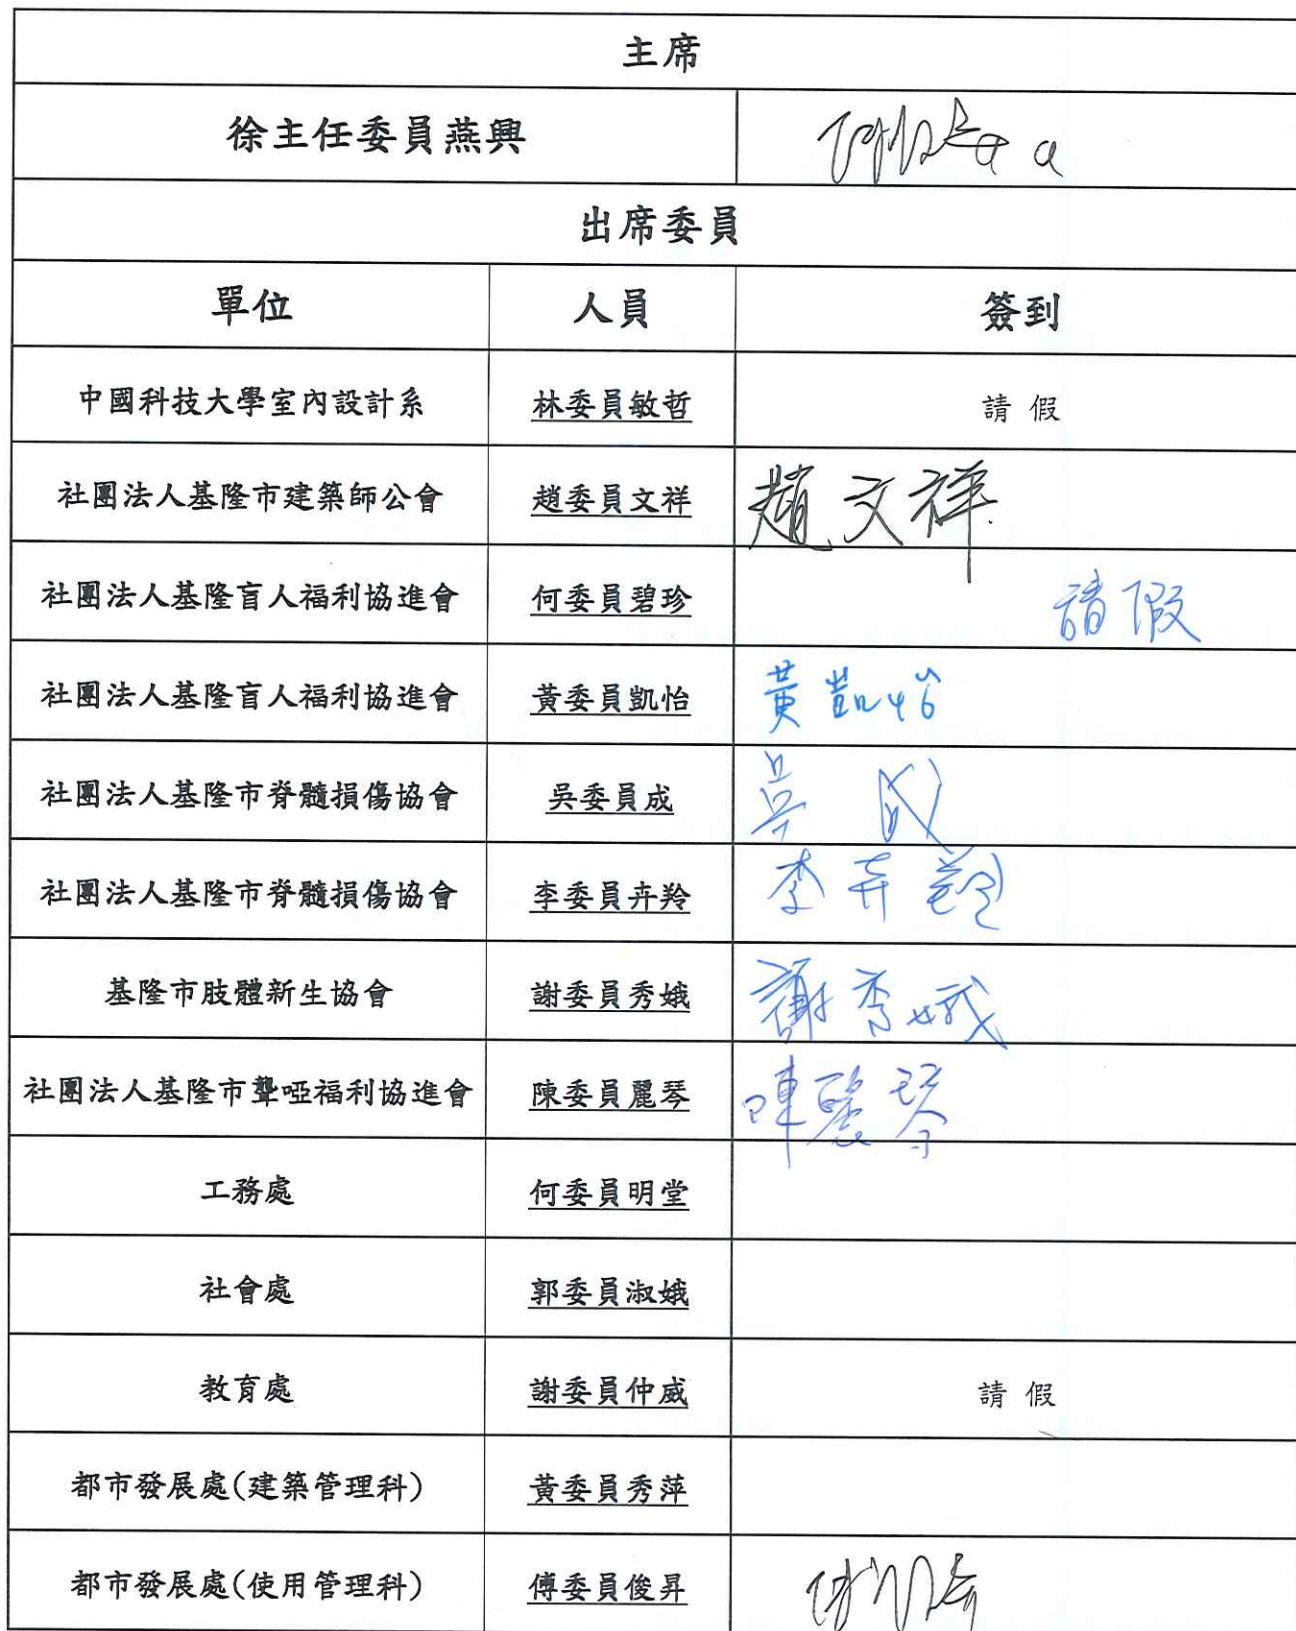 主席
徐主任委員燕興
出席委員
單位 人員 簽到
中國科技大學室內設計系 林委員敏哲 請假
社團法人基隆市建築師公會 趙委員文祥 趙文祥
社團法人基隆盲人福利協進會 何委員碧珍 請假
社團法人基隆盲人福利協進會 黃委員凱怡 黃凱怡
社團法人基隆市脊髓損傷協會 吳委員成 吳成
社團法人基隆市脊髓損傷協會 李委員卉羚 李卉羚
基隆市肢體新生協會 謝委員秀娥 謝秀娥
社團法人基隆市聾啞福利協進會 陳委員麗琴 陳麗琴
工務處 何委員明堂
社會處 郭委員淑娥
教育處 謝委員仲威 請假
都市發展處(建築管理科) 黃委員秀萍
都市發展處(使用管理科) 傅委員俊昇